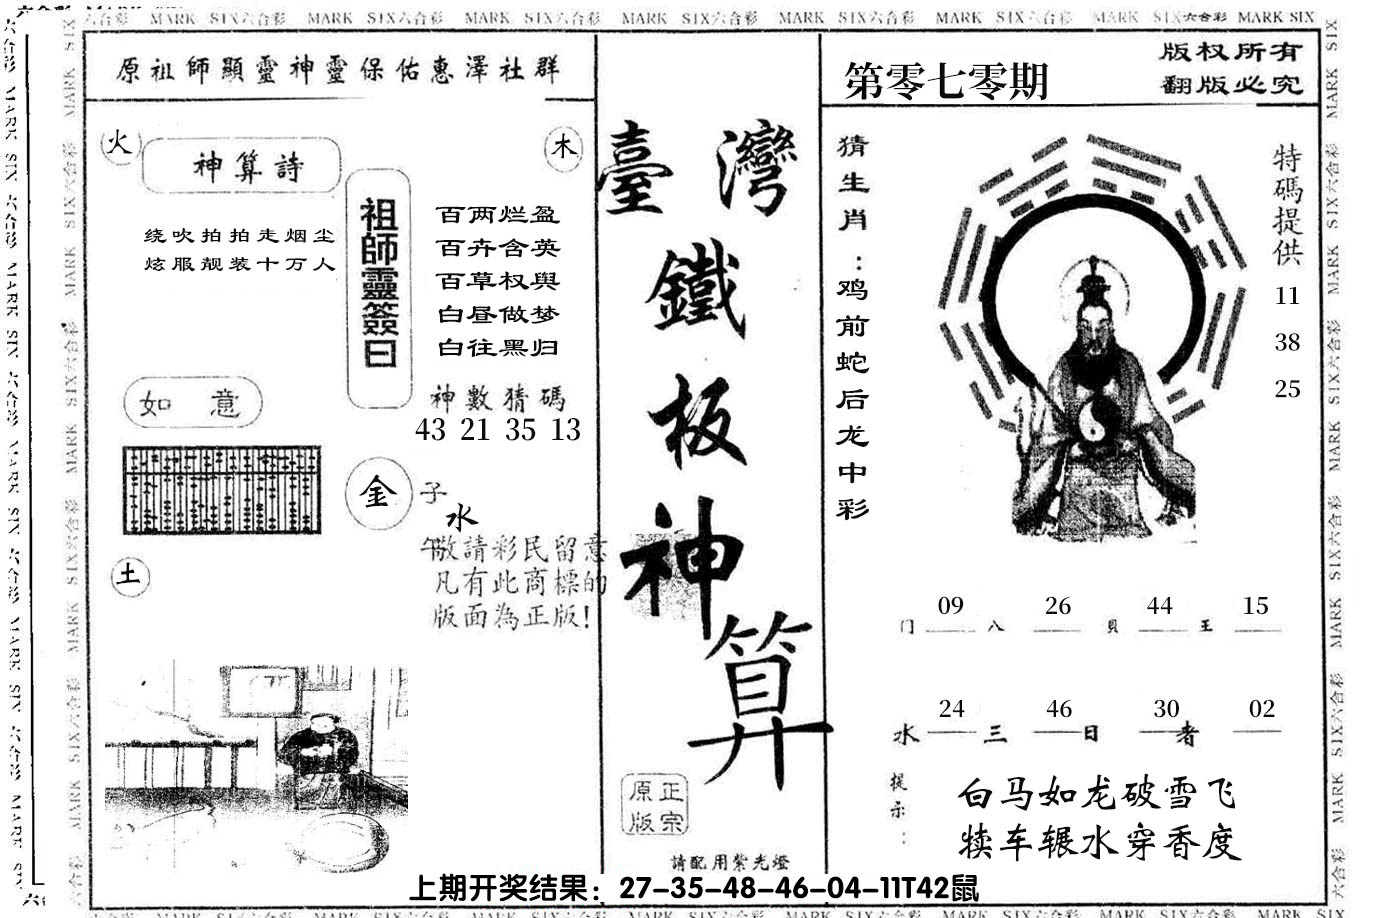 MARK SIX六合彩 MARK SIX六合彩 MARK SIX六合彩 MARK SIX六合彩 MARK SIX六合彩 MARK SIX六合彩 MARK SIX六合彩 MARK SIX
原祖師顯靈神靈保佑惠澤社群
火
神算詩
木
绕吹拍拍走烟尘
炫服靓装十万人
祖師靈簽曰
百两烂盈
百卉含英
百草权舆
白昼做梦
白往黑归
神數猜碼
43 21 35 13
如意
金
子
水
午
敬請彩民留意
凡有此商標的
版面為正版!
土
臺灣
鐵
板
神
算
正宗
原版
請配用紫光燈
第零七零期
版权所有
翻版必究
猜生肖:鸡前蛇后龙中彩
特碼提供
11
38
25
09 26 44 15
门 八 貝 王
24 46 30 02
水 三 日 者
提示:
白马如龙破雪飞
犊车辗水穿香度
上期开奖结果：27-35-48-46-04-11T42鼠